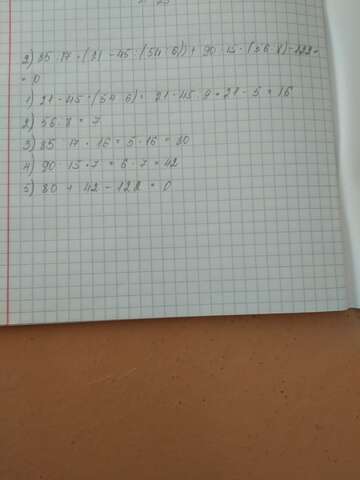 2) 85 : 17 · (21 - 45 : (54 : 6)) + 90 : 15 · (56 : 8) - 122 =
= 0
1) 21 - 45 : (54 : 6) = 21 - 45 : 9 = 21 - 5 = 16
2) 56 : 8 = 7
3) 85 : 17 · 16 = 5 · 16 = 80
4) 90 : 15 · 7 = 6 · 7 = 42
5) 80 + 42 - 122 = 0